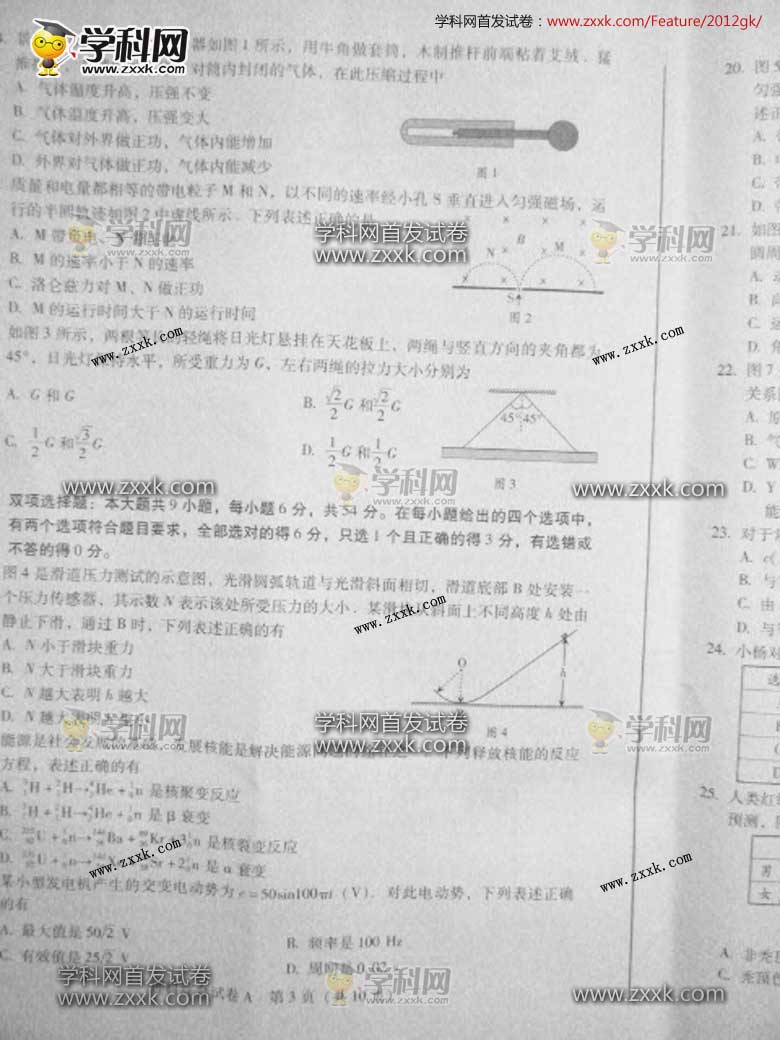 学科网首发试卷：www.zxxk.com/Feature/2012gk/
学科网
www.zxxk.com
器如图1所示，用牛角做套筒，木制推杆前端粘着艾绒．猛
对筒内封闭的气体，在此压缩过程中
A. 气体温度升高，压强不变
B. 气体温度升高，压强变大
C. 气体对外界做正功，气体内能增加
D. 外界对气体做正功，气体内能减少
图1
质量和电量都相等的带电粒子M和N，以不同的速率经小孔S垂直进入匀强磁场，运
行的半圆轨迹如图2中虚线所示．下列表述正确的是
A. M带
B. M的速率小于N的速率
C. 洛仑兹力对M、N做正功
D. M的运行时间大于N的运行时间
N B M
S
图2
如图3所示，两根等长的轻绳将日光灯悬挂在天花板上，两绳与竖直方向的夹角都为
45°，日光灯保持水平，所受重力为G，左右两绳的拉力大小分别为
A. G和G
B. √2/2 G和√2/2 G
C. 1/2 G和√3/2 G
D. 1/2 G和1/2 G
45° 45°
图3
双项选择题：本大题共9小题，每小题6分，共54分。在每小题给出的四个选项中，
有两个选项符合题目要求，全部选对的得6分，只选1个且正确的得3分，有选错或
不答的得0分。
图4是滑道压力测试的示意图，光滑圆弧轨道与光滑斜面相切，滑道底部B处安装一
个压力传感器，其示数N表示该处所受压力的大小．某滑块从斜面上不同高度h处由
静止下滑，通过B时，下列表述正确的有
A. N小于滑块重力
B. N大于滑块重力
C. N越大表明h越大
D. N越大表明h越小
O
h
图4
能源是社会发展
展核能是解决能源
列释放核能的反应
方程，表述正确的有
A. ³₁H+²₁H→⁴₂He+¹₀n是核聚变反应
B. ³₁H+²₁H→⁴₂He+¹₀n是β衰变
C. ²³⁵₉₂U+¹₀n→¹⁴⁴₅₆Ba+⁸⁹₃₆Kr+3¹₀n是核裂变反应
D.
Sr+2¹₀n是α衰变
某小型发电机产生的交变电动势为e=50sin100πt（V）．对此电动势，下列表述正确
的有
A. 最大值是50√2 V
B. 频率是100 Hz
C. 有效值是25√2 V
D. 周期是0.02
试卷A 第3页（共10
20. 图5
匀强
述正
A.
B.
C.
D.
21. 如图
圆周
A.
B.
C.
D. 角
22. 图7
关系图
A.
B. 气
C. W
D. Y
能
23. 对于常
A. c(
B. 与
C. 由
D. 与
24. 小杨对
选
25. 人类红
预测，
男
女
A. 非秃顶
C. 秃顶色
学科网首发试卷
www.zxxk.com
学科网
zxxk.com